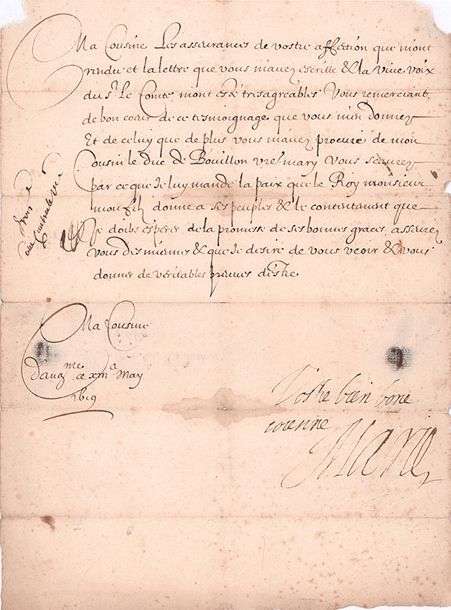 Ma Cousine Les asseurances de vostre affection que mont
rendu et la lettre que vous mavez escritte & la vive voix
du Sr Le Comte mont esté tresagreables Vous remerciant
de bon coeur de ce tesmoignage que vous men donnez
Et de celuy que de plus vous mavez procuré de mon
Cousin le duc de Bouillon vre mary Vous scaurez
par ce que Je luy mande la paix que le Roy monsieur
mon filz donne a ses peuples & le contentement que
Je doibs esperer de la promesse de ses bonnes graces assurez
vous des miennes & que Je desire de vous veoir & vous
donner de véritables preuves destre
Ma Cousine
May
1619
Vostre bien bonne
cousine
Marie